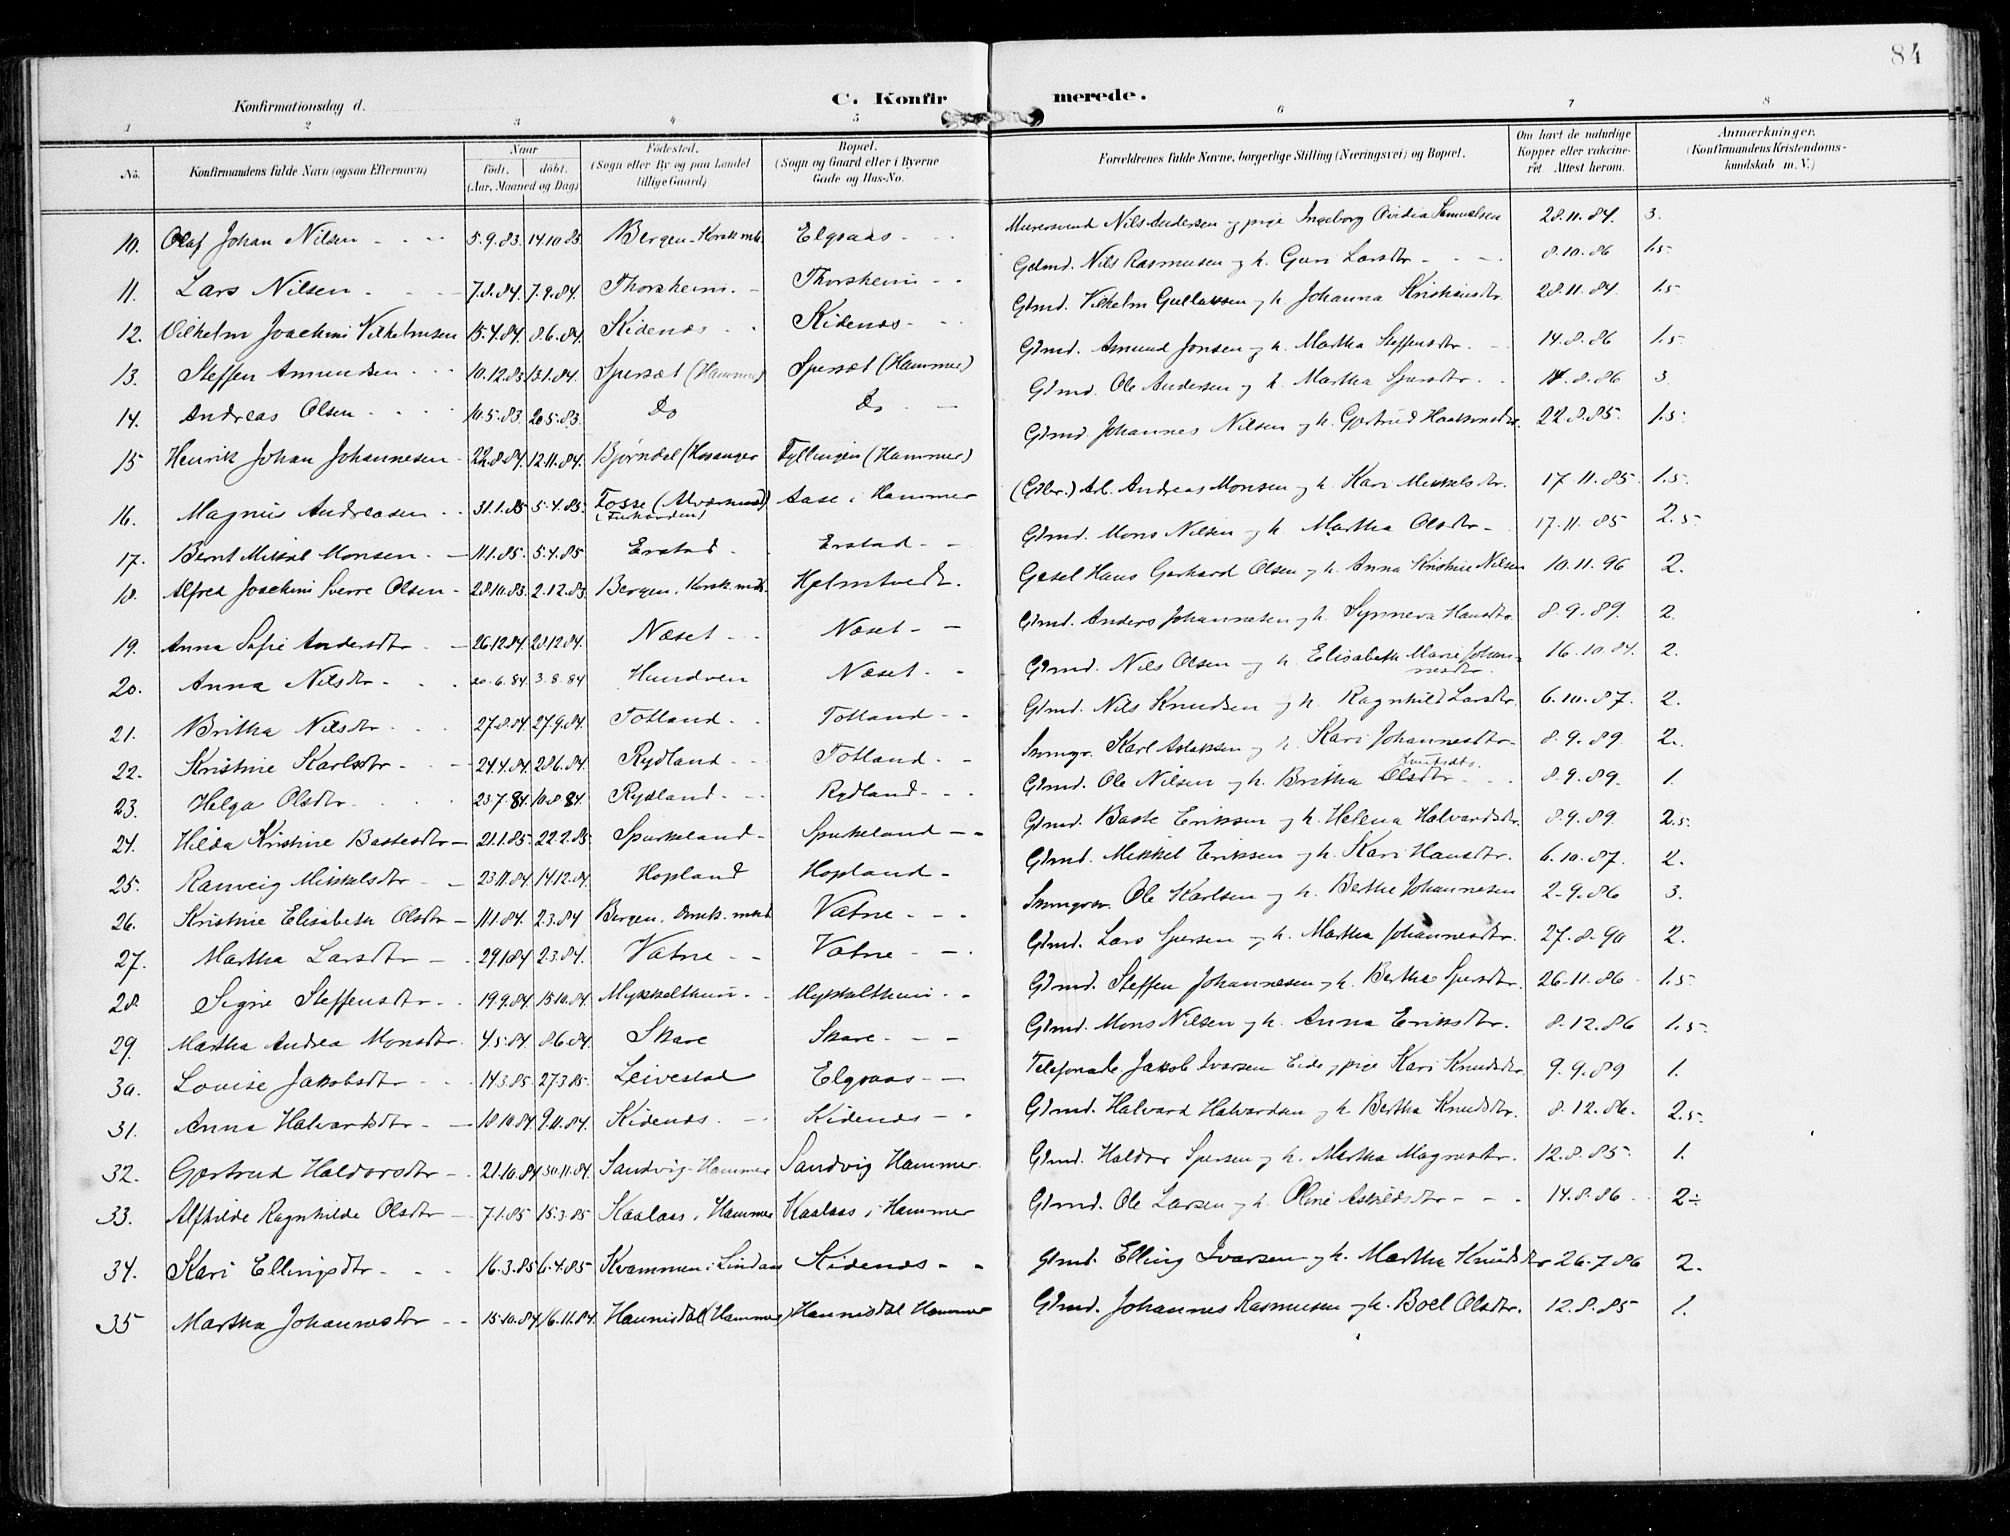 84
Konfirmationsdag d. C. Konfir merede.
1 2 3 4 5 6 7 8
No. Konfirmandens fulde Navn (ogsaa Efternavn) Naar født. døbt. (Aar, Maaned og Dag) Fødested. (Sogn eller By og paa Landet tillige Gaard) Bopæl. (Sogn og Gaard eller i Byerne Gade og Hus-No. Forældrenes fulde Navne, borgerlige Stilling (Næringsvei) og Bopæl. Om havt de naturlige Kopper eller vakcineret Attest herom. Anmærkninger. (Konfirmandens Kristendomskundskab m. V.)
10. Olaf Johan Nilsen 5.9.83. 14.10.83 Bergen - Korsk. mh. Elgraas Murersvend Nils Andersen og pige Ingeborg Ovidia Samuelsen 28.11.84. 3.
11. Lars Nilsen 7.8.84. 7.9.84. Thorsheim Thorsheim Gdmd. Nils Rasmusen og h. Guri Larsdtr 8.10.86 1.5
12. Vilhelm Joachim Vilhelmsen 15.4.84. 8.6.84. Kidenes Kidenes Gdmd. Vilhelm Gullaksen og h. Johanna Kristensdtr 28.11.84. 1.5
13. Steffen Amundsen 10.12.83 13.1.84. Spersæt (Hammer) Spersæt (Hammer) Gdmd. Amund Jonsen og h. Martha Steffensdtr. 14.8.86 1.5
14. Andreas Olsen 10.5.83. 20.5.83. Do Do Gdmd. Ole Andersen og h. Martha Spersdtr. 14.8.86 3.
15 Henrik Johan Johannesen 22.8.84. 12.11.84. Bjørndal (Hosanger Fyllingen (Hammer) Gdmd Johannes Nilsen og h. Gjertrud Haakonsdtr. 22.8.85. 1.5
16. Magnus Andreasen 31.1.85 5.4.85. Fosse (Alversund) Aase i Hammer (Gdbr.) Arb. Andreas Monsen og h. Kari Mikkelsdtr. 17.11.85. 1.5.
17. Bernt Mikkal Monsen 11.1.85. 5.4.85 Erstad Erstad Gdmd. Mons Nilsen og h. Martha Olsdtr 17.11.85 2.5
18. Alfred Joachim Sverre Olsen 28.10.83. 2.12.83 Bergen. Korsk. mh. Hjelmtvedt. Gæsel Hans Gerhard Olsen og h. Anna Kristine Nilsen 10.11.96 2.
19. Anna Sofie Andersdtr 26.12.84 28.12.84. Næset Næset Gdmd. Anders Johannesen og h. Synneva Hansdtr 8.9.89. 2.
20. Anna Nilsdtr 20.6.84 3.8.84 Hundven Næset Gdmd. Nils Olsen og h. Elisabeth Marie Johannesdtr. 16.10.84. 2.
21. Britha Nilsdtr 27.8.84 27.9.84. Totland Totland Gdmd. Nils Knudsen og h. Ragnhild Larsdtr. 6.10.87. 2.
22. Kristine Karlsdtr 24.4.84 28.6.84. Rydland Totland Karl Aslaksen og h. Kari Johannesdtr 8.9.89. 2.
23. Helga Olsdtr 23.7.84. 10.8.84 Rydland Rydland Gdmd. Ole Nilsen og h. Britha Olsdtr Knutsdtr. 8.9.89. 1.
24. Hilda Kristine Bastesdtr 21.1.85 22.2.85 Spurkeland Spurkeland Gdmd. Baste Eriksen og h. Helena Halvardsdtr. 8.9.89. 2.5.
25. Ranveig Mikkelsdtr 23.11.84 14.12.84. Hopland Hopland Gdmd. Mikkel Eriksen og h. Kari Hansdtr. 6.10.87. 2.
26. Kristine Elisabeth Olsdtr 11.1.84. 2.3.84 Bergen. Vatne Ole Karlsen og h. Berthe Johannesen 2-9.86 3.
27. Martha Larsdtr 29.1.84 2.3.84. Vatne Vatne Gdmd. Lars Spersen og h. Martha Johannesdtr. 27.8.90 2.
28. Signe Steffensdtr 19.9.84 15.10.84. Mykkelthun Mykkelthun Gdmd. Steffen Johannesen og h. Bertha Spersdtr. 26.11.86 1.5
29. Martha Andrea Monsdtr. 4.5.84 8.6.84. Skare Skare Gdmd. Mons Nilsen og h. Anna Eriksdtr. 8.12.86 1.5
30. Louise Jakobsdtr 14.3.85 27.3.85. Leivestad Elgraas Jakob Ivarsen Eide og pige Kari Knudsdtr. 9.9.89 1.
31. Anna Halvardsdtr 18.10.84 9.11.84. Kidenes Kidenes Gdmd. Halvard Halvardsen og h. Bertha Knudsdtr. 8.12.86. 2.5
32. Gjertrud Haldorsdtr 21.10.84 30.11.84. Sandvig - Hammer Sandvig Hammer. Gdmd. Haldor Spersen og h. Martha Magnesdtr. 12.8.85. 1.
33. Alfhilde Ragnhilde Olsdtr 7.1.85 15.3.85 Kaalaas i Hammer Kaalaas i Hammer Gdmd. Ole Larsen og h. Oline Askildsdtr 14.8.86 2÷
34. Kari Ellingsdtr 16.3.85 6.4.85 Kvammen i Lindaas Kidenes Gdmd. Elling Ivarsen og h. Martha Knudsdtr 26.7.86 2.
35 Martha Johannesdtr 15.10.84 16.11.84. Hannisdal (Hammer) Hannisdal Hammer Gdmd. Johannes Rasmusen og h. Boel Olsdtr. 12.8.85 1.